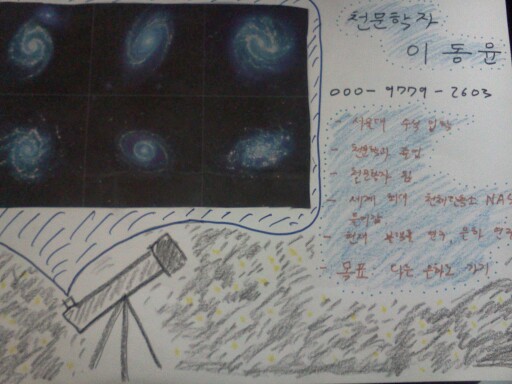 천문학자
이동윤
000-9779-2603
- 서울대 수석 입학
- 천문학과 졸업
- 천문학자 됨
- 세계 최대 천체연구소 NAS
- 현재 블랙홀 연구, 은하 연구
- 목표: 다른 은하로 가기